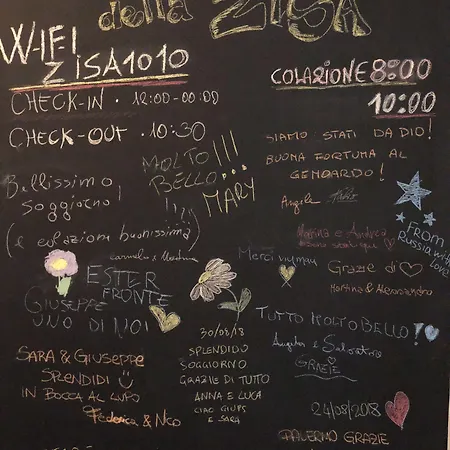 della ZISA
W-IFI
ZISA1010
CHECK-IN · 12:00-00:00
CHECK-OUT · 10:30
COLAZIONE 8:00
10:00
SIAMO STATI DA DIO!
BUONA FORTUNA AL
GENOARDO!
Angela
MOLTO
BELLO!!!
MARY
Bellissimo
soggiorno!
(e colazioni buonissima)
FROM
RUSSIA WITH
LOVE
Martina e Andrea
Merci
Grazie di
Martina & Alessandro
ESTER
FRONTE
GIUSEPPE
UNO DI NOI
TUTTO MOLTO BELLO!
Salvatore
GRAZIE
30/08/18
SPLENDIDO
SOGGIORNO
GRAZIE DI TUTTO
ANNA E LUCA
CIAO GIUPS
E SARA
SARA & GIUSEPPE
SPLENDIDI
IN BOCCA AL LUPO
Federica & Nico
24/08/2018
PALERMO GRAZIE